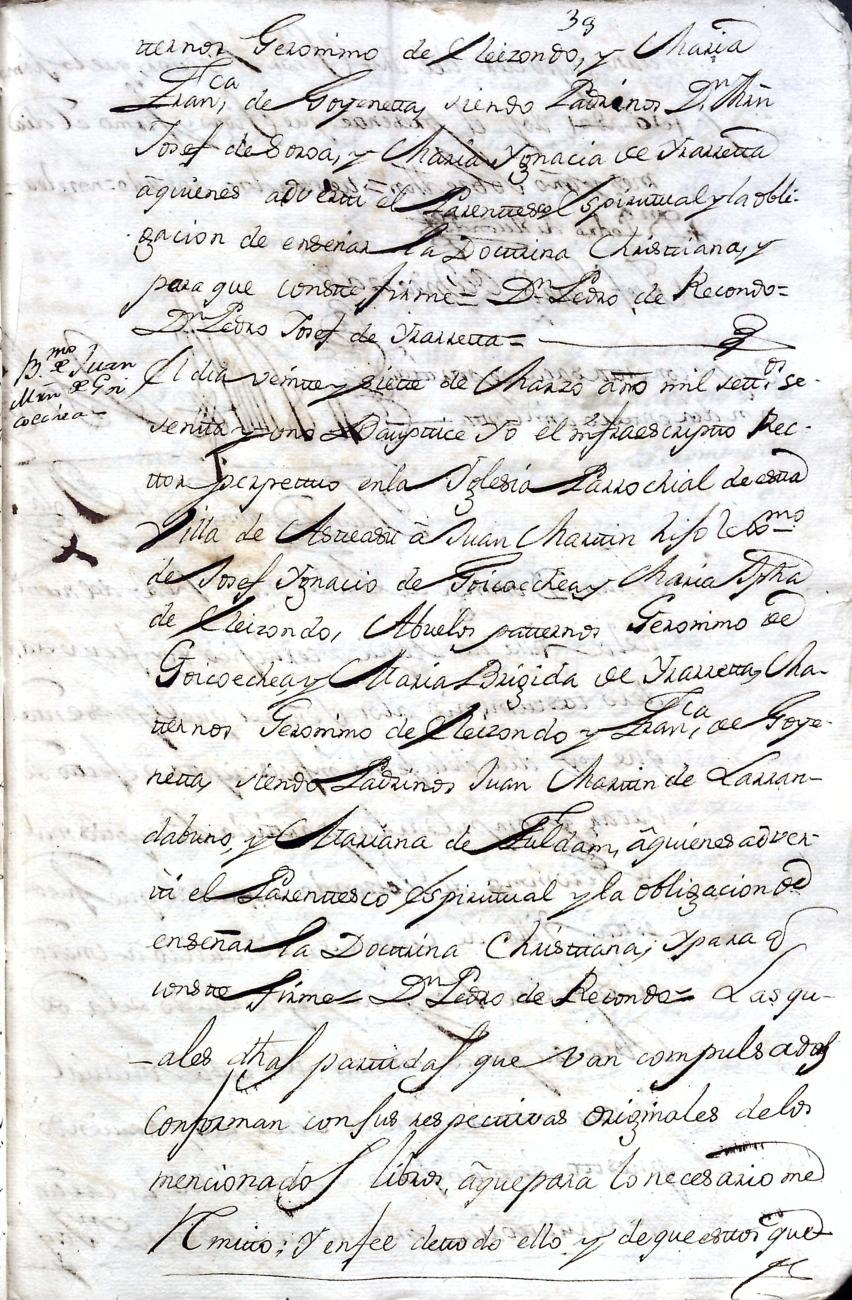 39
tternos Geronimo de Eleizondo, y Maria
Fran.ca de Goyenetta, siendo Padrinos D.n Mrn
Josef de Soroa, y Maria Ygnacia de Yrarretta
âquienes adverti el Parenttesco espirittual y la obli-
gacion de enseñar la Docttrina Christtiana, y
para que constte firme = D.n Pedro de Recondo =
D.n Pedro Josef de Yrarretta =
B.mo de Juan
Mrn de Goi
coechea
El dia veintte y siette de Marzo año mil sett.os se-
sentta y uno Bauptice Yo el infraescriptto Rec-
ttor perpettuo en la Yglesia Parrochial de estta
Villa de Astteasu â Juan Marttin hijo lex.mo
de Josef Ygnacio de Goicoechea y Maria Jpha
de Eleizondo, Abuelos patternos Geronimo de
Goicoechea y Maria Brigida de Yrarretta, Ma-
tternos Geronimo de Eleizondo y Fran.ca de Goye-
netta, siendo Padrinos Juan Marttin de Larran-
daburu, y Mariana de Zuldam, âquienes adver-
tti el Parenttesco Espirittual y la obligacion de
enseñar la Docttrina Christtiana, y para q
constte firme = D.n Pedro de Recondo = Las qu-
-ales dhas parttidas que van compulsados
conforman con sus respecttivas originales de los
mencionados libros âque para lo necesario me
Rmitto; Y en fee de ttodo ello y de que esttos que